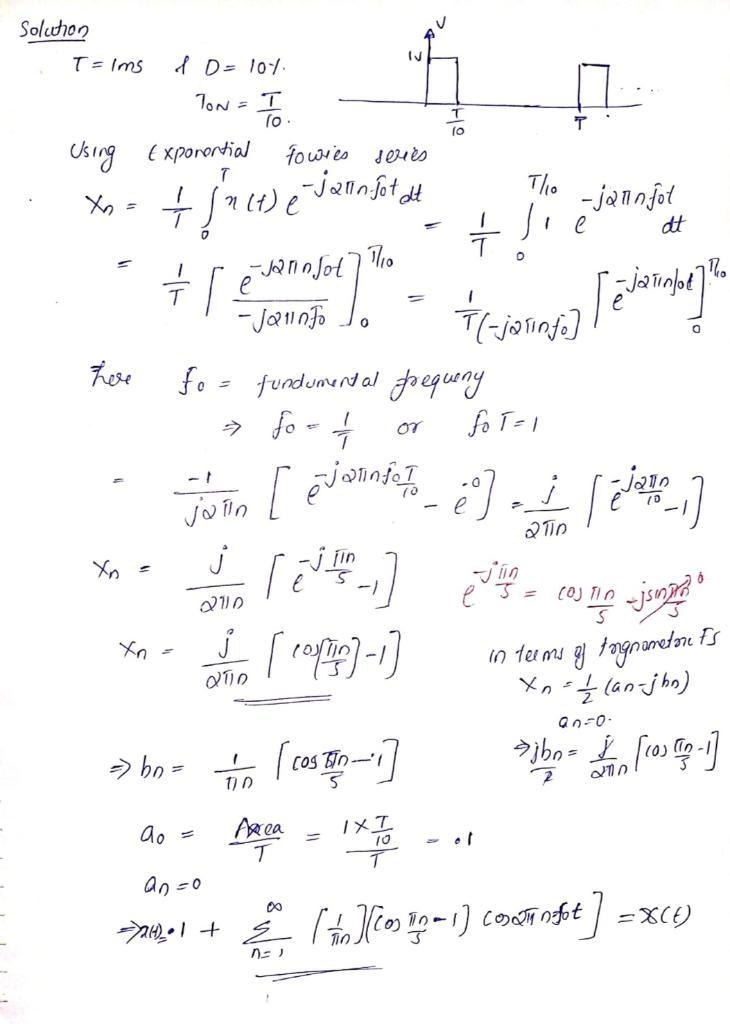 Solution
T = 1ms & D = 10%.
TON = T/10.
V
1V
T/10
T
....
Using Exponential fouries series
Xn = 1/T ∫_0^T x(t) e^{-j2πnfot} dt = 1/T ∫_0^{T/10} 1 e^{-j2πnfot} dt
= 1/T [ e^{-j2πnfot} / -j2πnfo ]_0^{T/10} = 1/T(-j2πnfo] [ e^{-j2πnfot} ]_0^{T/10}
here fo = fundumental frequeny
⇒ fo = 1/T or foT = 1
= -1/j2πn [ e^{-j2πnfoT/10} - e^{-0} ] = j/2πn [ e^{-j2πn/10} -1 ]
Xn = j/2πn [ e^{-jπn/5} -1 ]
e^{-jπn/5} = cos πn/5 - jsin πn/5 0
Xn = j/2πn [ cos(πn/5) -1 ]
in terms of trignometric FS
Xn = 1/2 (an-jbn)
an=0.
⇒ bn = 1/πn [ cos πn/5 - 1 ]
⇒ jbn/2 = j/2πn [ cos πn/5 -1 ]
a0 = Area/T = 1×T/10 / T = .1
an = 0
⇒ x(t) = .1 + Σ_{n=1}^{∞} [ 1/πn ] [ cos πn/5 - 1 ) cos2πnfot ] = x(t)